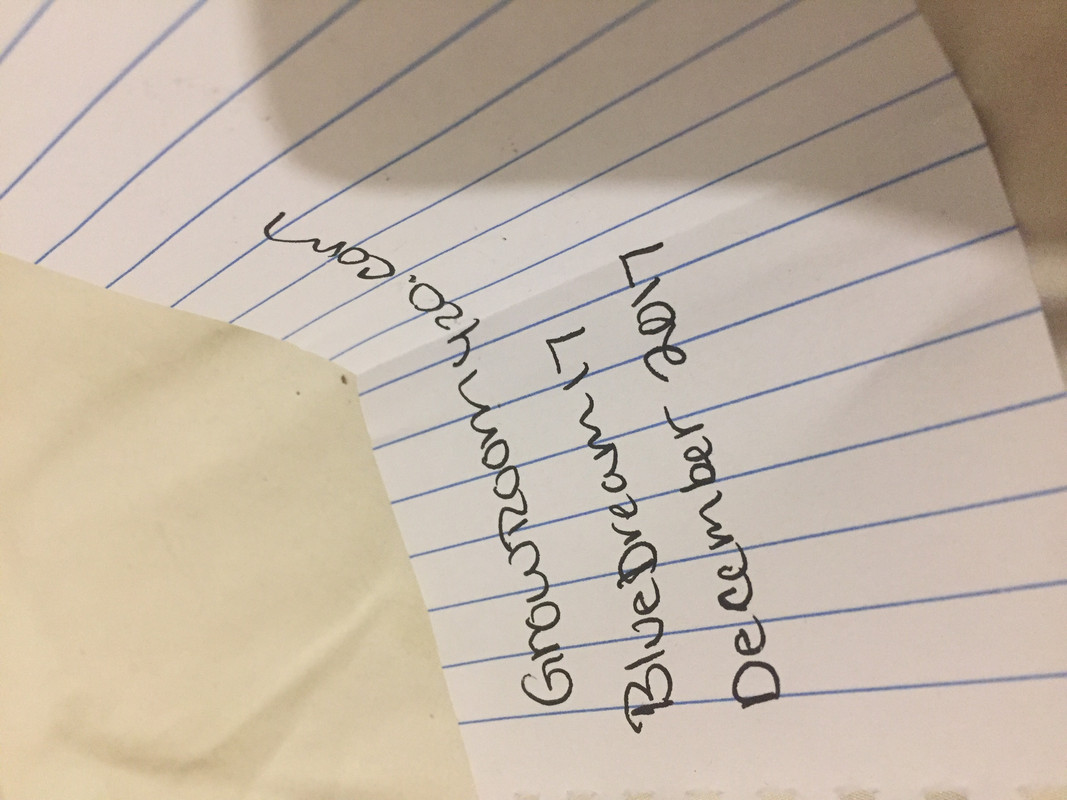 GrowRoom420.com
BlueDream17
December 2017